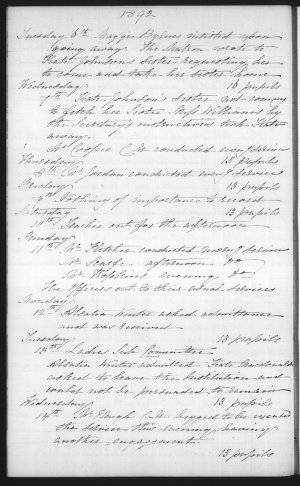 1892
Tuesday 6th Maggie Byrnes insisted upon
going away. The Matron wrote to
Kate Johnston's sister requesting her
to come and take her sister home
Wednesday 13 pupils
7th Kate Johnston's sister not coming
to fetch her sister Miss Williams by
the Secretary's instructions took Kate
away.
Mr Cooper C.M. conducted eveng service
Thursday 13 pupils
8th Mr Jordan conducted eveng service
Friday 13 pupils
9th Nothing of importance to record
Saturday 13 pupils
10th Teaches out for the afternoon
Sunday
11th Mr Fletcher conducted morng service
Mr Searle afternoon do
Mr Hopkins evening do
The Officers out to their usual services
Monday
12th asked admittance
and was received.
Tuesday 13 pupils
13th Ladies Sub Committee
admitted. Kate Macdonald
asked to leave the Institution and
could not be persuaded to remain
Wednesday 13 pupils
14th Mr Hough C.M. begged to be excused
the service this evening, having
another engagement.
13 pupils